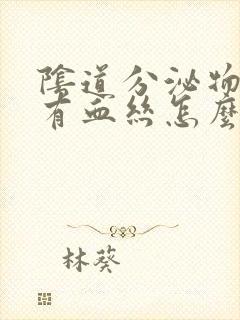 陰道分泌物
有血絲怎麼
林葵